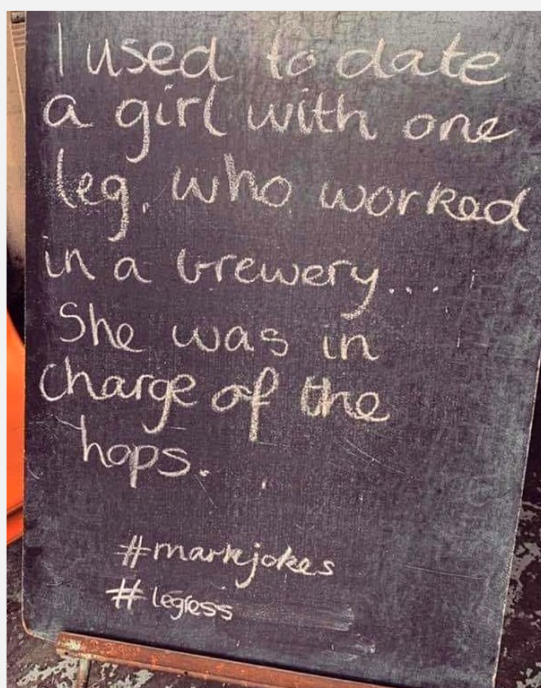 I used to date
a girl with one
leg, who worked
in a brewery...
She was in
charge of the
hops.
#markjokes
#legless